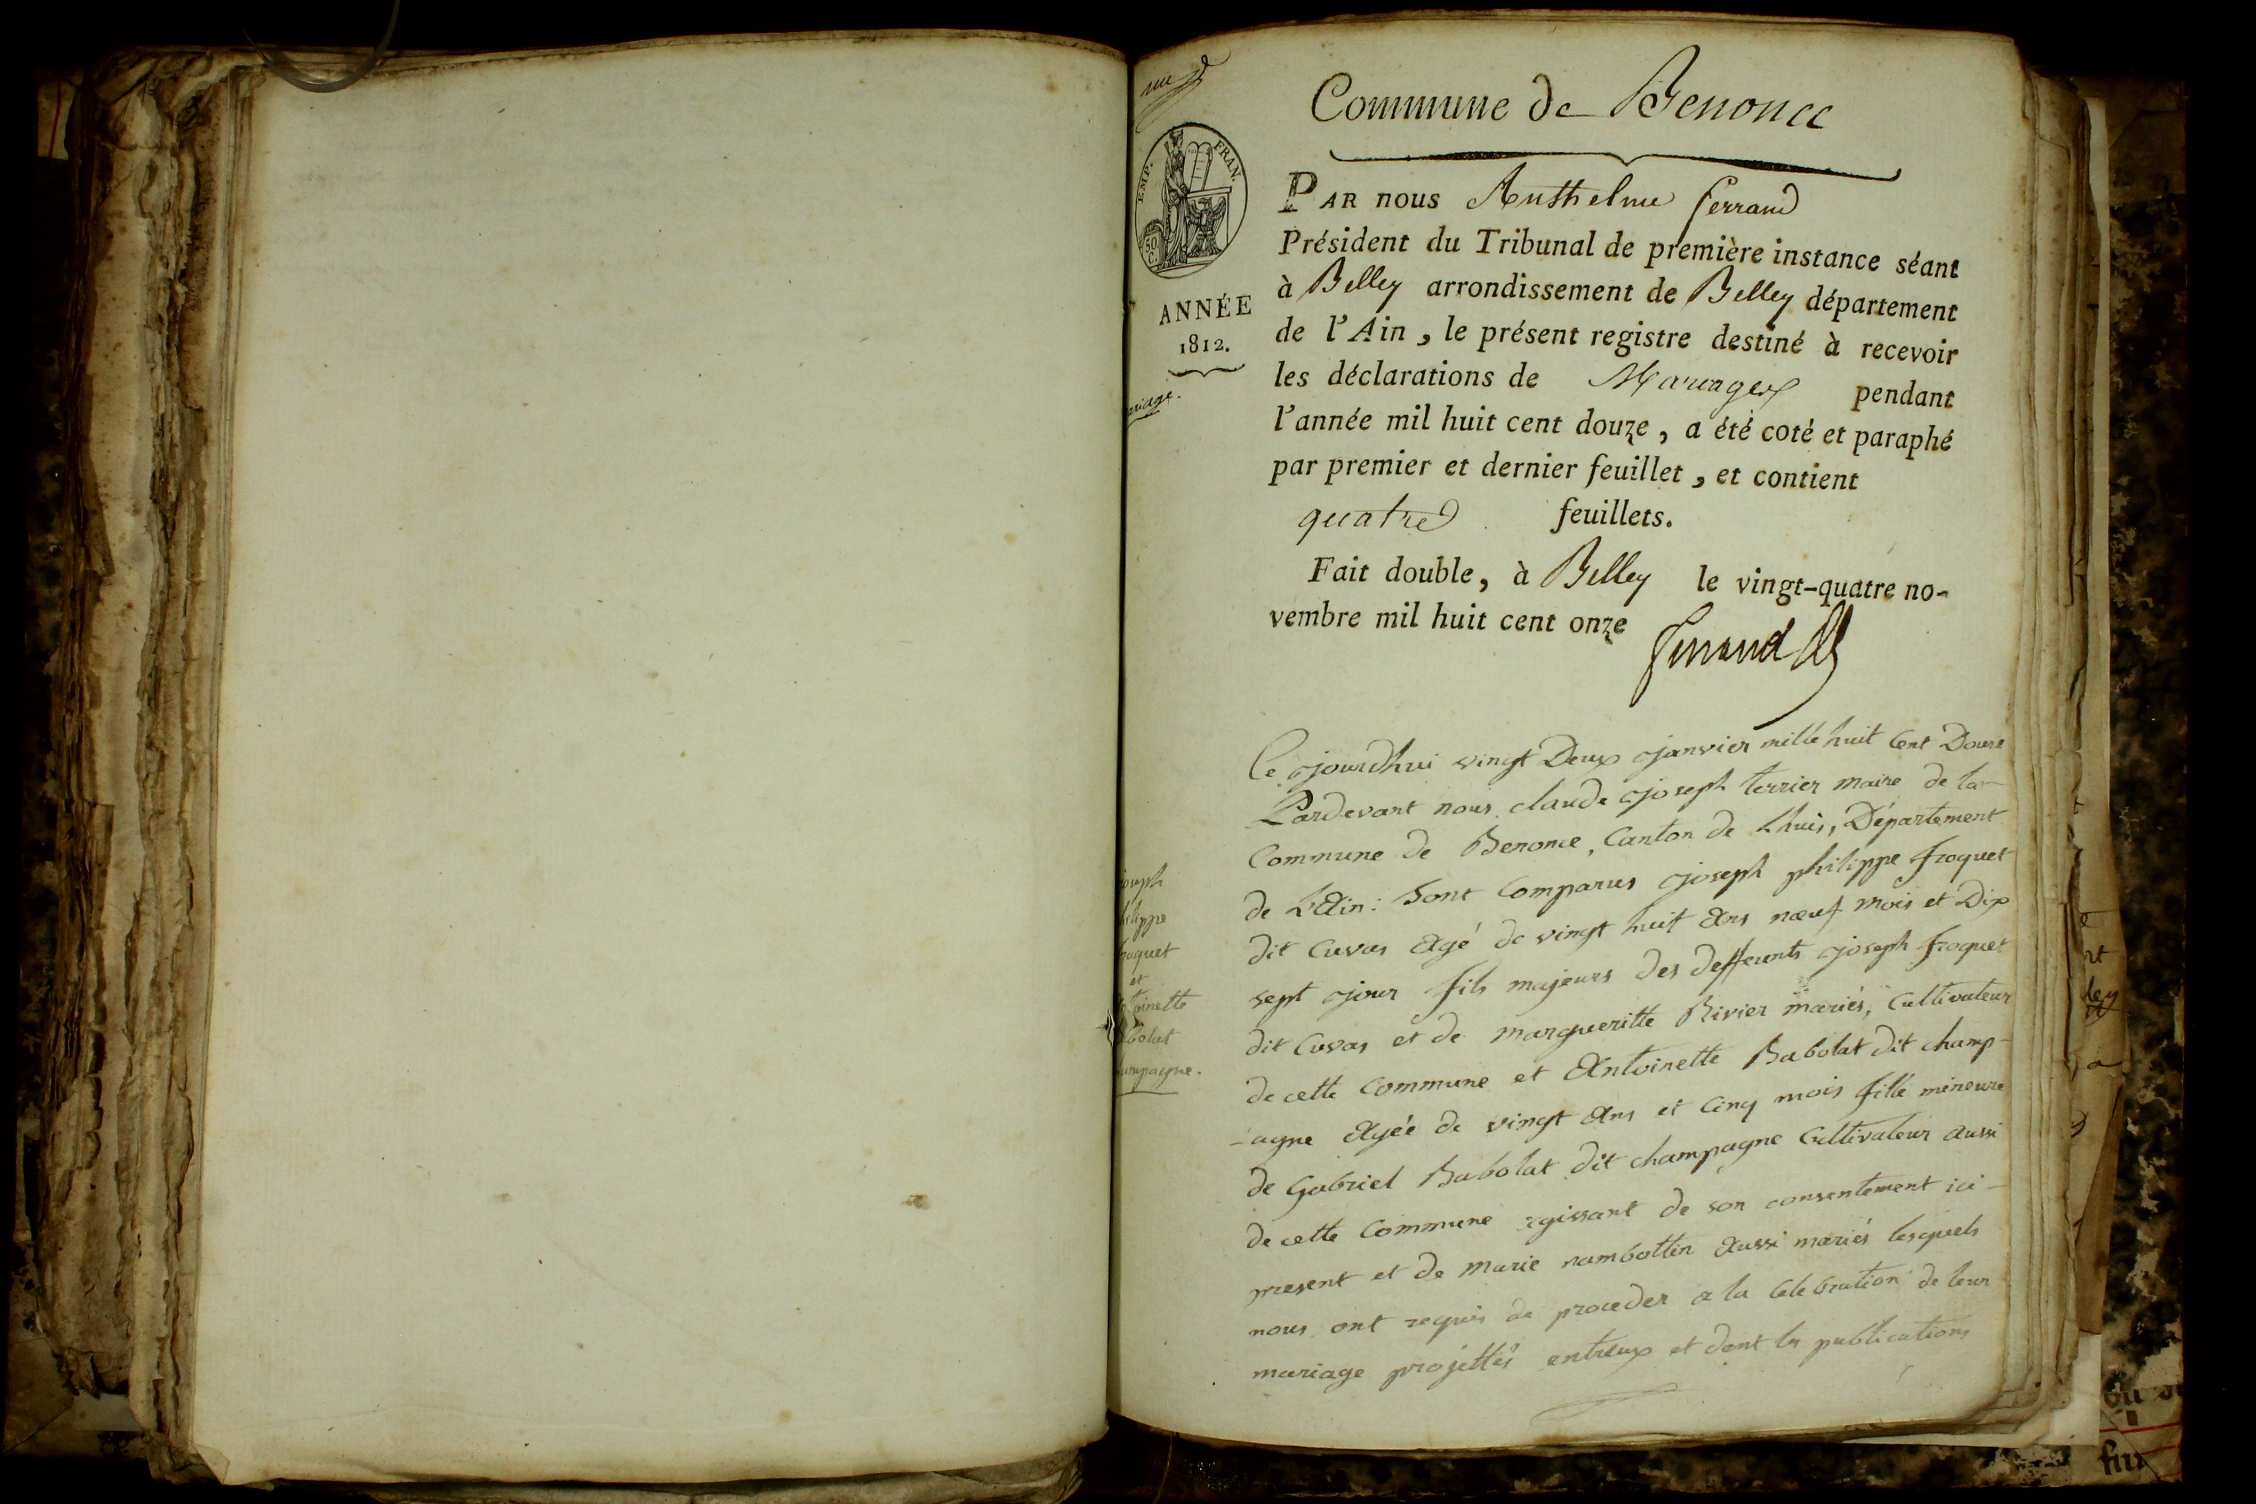 Commune de Benonce
EMP. FRAN.
50
C.
ANNÉE
1812.
PAR nous Anthelme ferrand
Président du Tribunal de première instance séant
à Belley arrondissement de Belley département
de l'Ain, le présent registre destiné à recevoir
les déclarations de Mariages pendant
l'année mil huit cent douze, a été coté et paraphé
par premier et dernier feuillet, et contient
quatre feuillets.
Fait double, à Belley le vingt-quatre no-
vembre mil huit cent onze
ferrand
Ce jourdhui vingt Deux janvier mille huit Cent Douze
Pardevant nous claude joseph terrier maire de la
Commune de Benonce, Canton de Lhuis, Département
de L'Ain: Sont Comparus joseph philippe froquet
dit Cuvas Agé de vingt huit Ans nœuf mois et Dix
sept jour fils majeurs des deffeunts joseph froquet
dit Cuvas et de margueritte Rivier mariés, Cultivateur
de cette Commune et Antoinette Babolat dit champ-
-agne Agée de vingt Ans et Cinq mois fille mineure
de Gabriel Babolat dit champagne Cultivateur aussi
de cette Commune agissant de son consentement ici
present et de marie rambottin Aussi mariés lesquels
nous ont requis de proceder a la Celebration de leur
mariage projettés entreux et dont les publications
riage.
joseph
hilippe
froquet
et
toinette
bolat
ampagne.